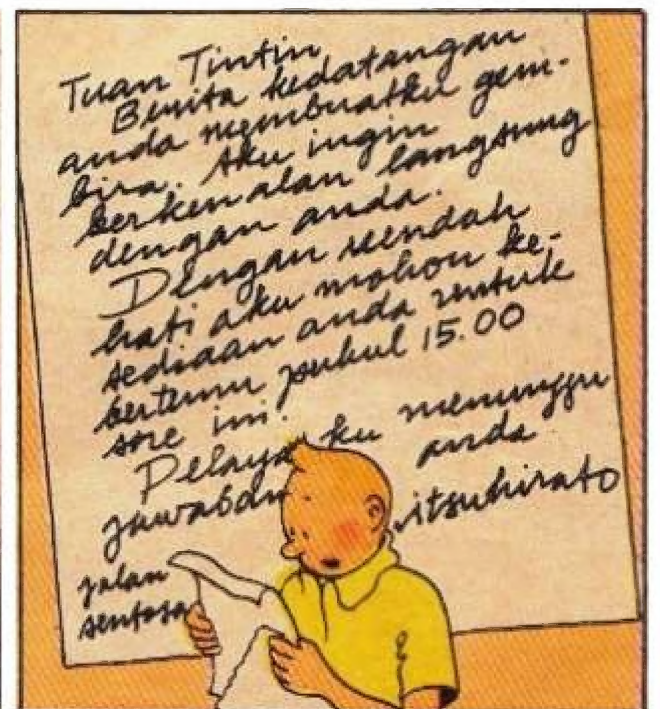 Tuan Tintin
Berita kedatangan
anda membuatku gem-
bira. Aku ingin
berkenalan langsung
dengan anda.
Dengan rendah
hati aku mohon ke-
sediaan anda untuk
bertemu pukul 15.00
sore ini.
Pelaya ku menunggu
jawaban anda
itsuhirato
jalan
sentosa